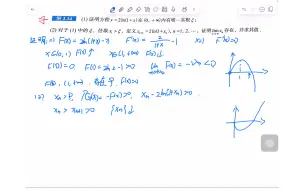 例 2.34 (1) 证明方程 x=2ln(1+x) 在 (0,+∞) 内有唯一实根 ξ;
(2) 对于 (1) 中的 ξ, 任取 x₁>ξ, 定义 xₙ₊₁=2ln(1+xₙ), n=1,2,…, 证明 lim xₙ 存在, 并求其值.
证明: (1) F(x)=2ln(1+x)-x F'(x)=2/(1+x) -1 x=1 F'(x)=0
x∈(0,1) F(x)↑ x∈(1,+∞) F(x)↓
F(0)=0 F(1)=2ln2-1>0 lim F(x)=-∞<0
F(x) (1,+∞) F(ξ)=0
(2) xₙ>ξ xₙ-2ln(1+xₙ)>0
xₙ>xₙ₊₁>0 {xₙ}↓